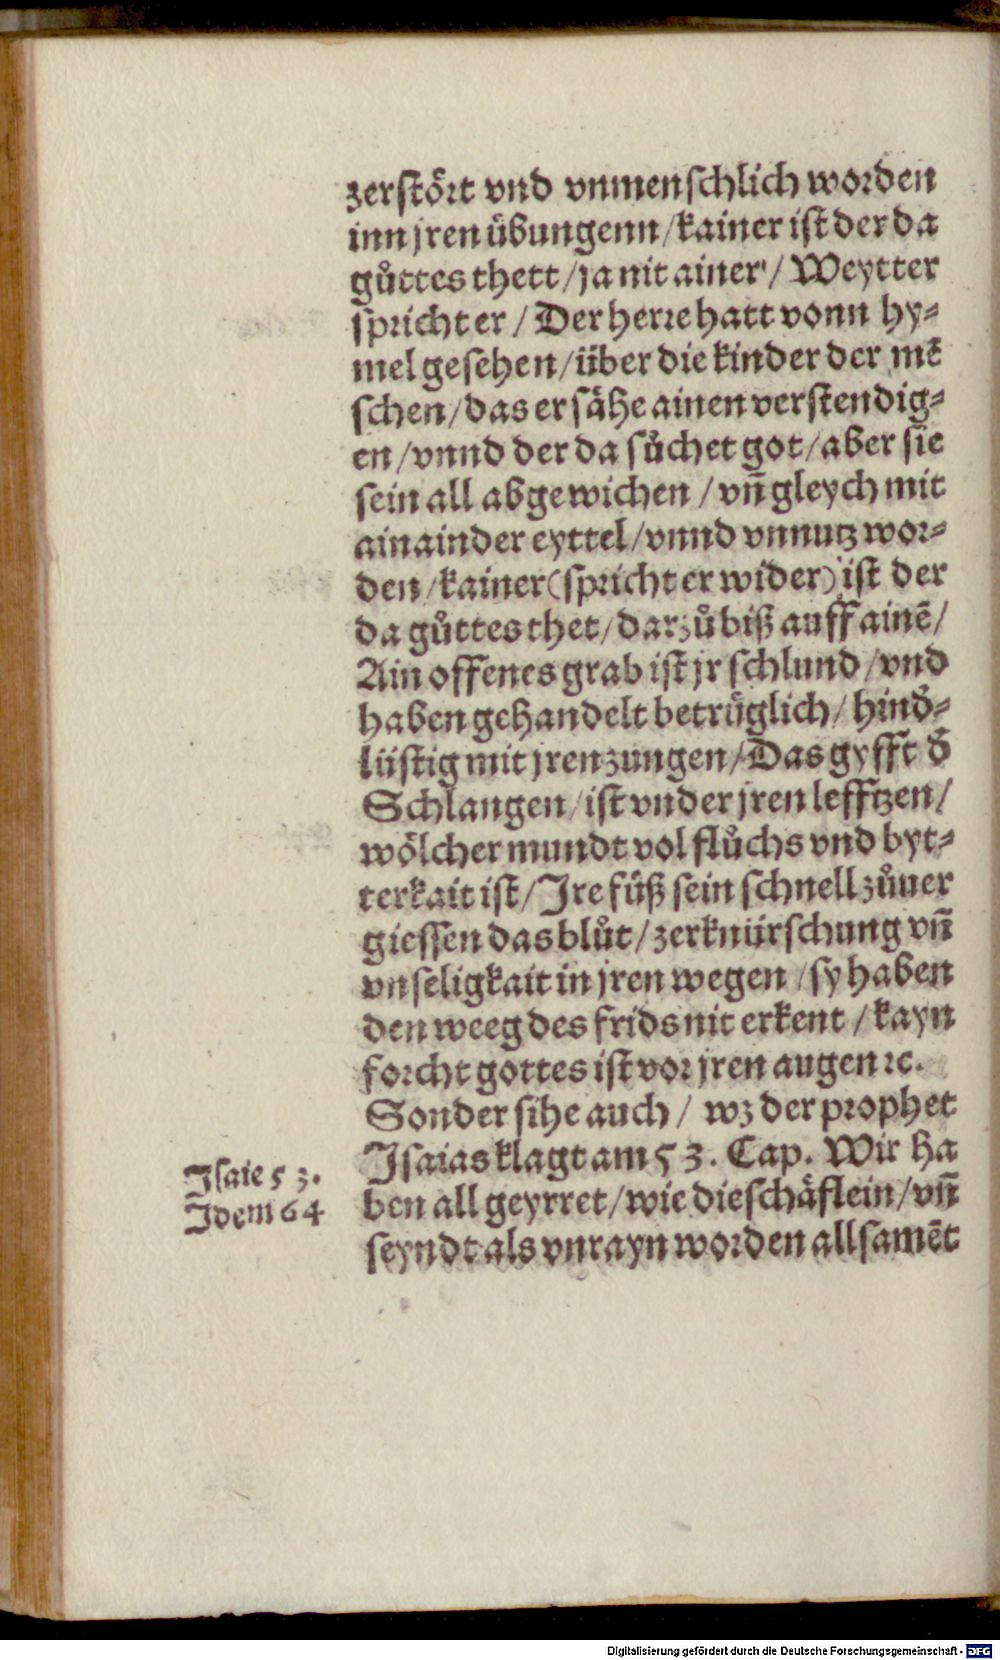 zerstört vnd vnmenschlich worden
inn jren übungenn/kainer ist der da
gůttes thett/ja nit ainer/ Weytter
spricht er / Der herre hatt vonn hy-
mel gesehen/über die kinder der mẽ
schen/das er sähe ainen verstendig-
en/vnnd der da sůchet got/aber sie
sein all abgewichen / vñ gleych mit
ainainder eyttel/vnnd vnnutz wor-
den/kainer(spricht er wider)ist der
da gůttes thet/darzů biß auff ainẽ/
Ain offenes grab ist jr schlund/vnd
haben gehandelt betrüglich/ hind̃-
lüstig mit jren zungen/Das gyfft d̃
Schlangen/ist vnder jren lefftzen/
wölcher mundt vol flůchs vnd byt-
terkait ist/Ire füß sein schnell zůuer
giessen das blůt/zerknürschung vñ
vnseligkait in jren wegen /sy haben
den weeg des frids nit erkent /kayn
forcht gottes ist vor jren augen ꝛc.
Sonder sihe auch/ wz der prophet
Isaias klagt am 53. Cap. Wir ha
ben all geyrret/wie die schäflein/vñ
seyndt als vnrayn worden allsamẽt
Isaie 53.
Idem 64
Digitalisierung gefördert durch die Deutsche Forschungsgemeinschaft - DFG